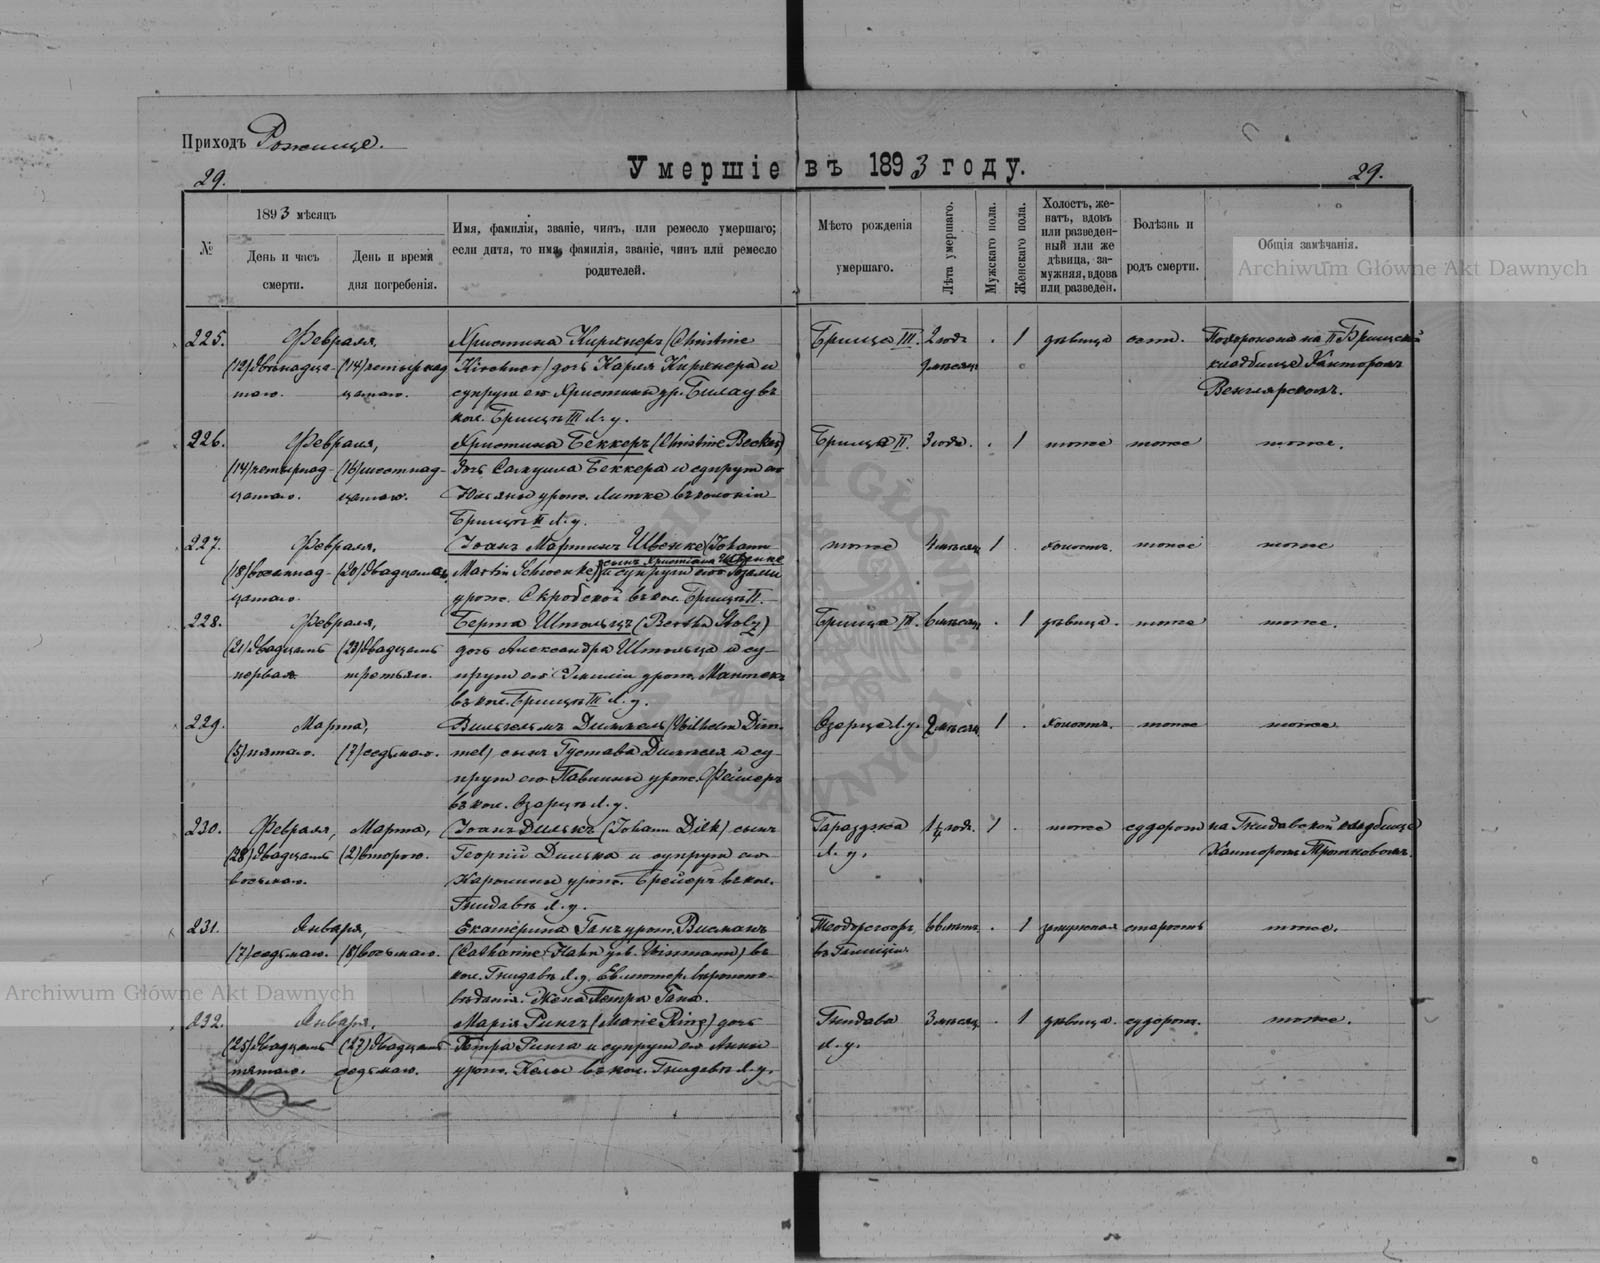 Приходъ Рожище.
Умершіе въ 1893 году.
29.
29.
№
1893 мѣсяцъ
День и часъ
смерти.
День и время
дня погребенія.
Имя, фамилія, званіе, чинъ, или ремесло умершаго;
если дитя, то имя, фамилія, званіе, чинъ или ремесло
родителей.
Мѣсто рожденія
умершаго.
Лѣта умершаго.
Мужскаго пола.
Женскаго пола.
Холостъ, же-
натъ, вдовъ
или разведен-
ный или же
дѣвица, за-
мужняя, вдова
или разведен.
Болѣзнь и
родъ смерти.
Общія замѣчанія.
Archiwum Główne Akt Dawnych
225.
Февраля,
(12) двѣнадца-
таго.
(14) четырнад
цатаго.
Христина Кирхнеръ (Christine
Kirchner) дочь Карла Кирхнера и
супруги его Христины ур. Билау въ
кол. Брищѣ III Л. у.
Брище III.
2 года
9 мѣсяц
1
дѣвица
Похоронена на II Брищской
кладбище Канторомъ
226.
Февраля,
(14) четырнад-
цатаго.
(16) шестнад-
цатаго.
Христина Беккеръ (Christine Becker)
дочь Самуила Беккера и супруги его
урож. Литке въ колоніи
Брищѣ II Л. у.
Брище II.
3 года.
1
тоже
тоже
тоже.
227.
Февраля,
(18) восемнад-
цатаго.
(20) двадцатаго
Іоанъ Мартинъ Швенке (Johann
Martin Schwenke) сынъ Христіана Швенке
и супруги его Розаліи
урож. Скробской въ кол. Брищѣ II.
тоже
4 мѣсяц
1
холостъ.
тоже
тоже
228.
Февраля,
(21) двадцать
перваго
(23) двадцать
третьяго.
Берта Штольцъ (Bertha Stolz)
дочь Александра Штольца и су-
пруги его Эмиліи урож. Мантей
въ кол. Брищѣ III Л. у.
Брище III.
6 мѣсяц
1
дѣвица.
тоже
тоже.
229.
Марта,
(5) пятаго.
(7) седьмаго.
Вильгельмъ Диммель (Wilhelm Dim-
mel) сынъ Густава Диммеля и су-
пруги его Павлины урож.
въ кол. Озерцѣ Л. у.
Озерце Л. у.
2 мѣсяц
1
холостъ.
тоже
тоже
230.
Февраля,
Марта,
(28) двадцать
восьмаго.
(2) втораго.
Іоанъ Дилькъ (Johann Dilk) сынъ
Георгія Дилька и супруги его
Каролины урож. Брейеръ въ кол.
Гнидавѣ Л. у.
Гаразджа
Л. у.
1
тоже
судороги
на Гнидавской кладбище
Канторомъ
231.
Января,
(7) седьмаго.
(8) восьмаго.
Екатерина Ганъ урож. Висманъ
(Catharine Hahn geb. Wissmann) въ
кол. Гнидавѣ Л. у. Ев. лютер. вѣроиспо-
вѣданія. Жена Петра Гана.
въ Галиціи.
1
замужняя
старость
тоже.
232.
Января,
(25) двадцать
пятаго.
(27) двадцать
седьмаго.
Марія Рингъ (Marie Ring) дочь
Петра Ринга и супруги его Анны
урож. въ кол. Гнидавѣ Л. у.
Гнидава
Л. у.
3 мѣсяц
1
дѣвица.
судороги.
тоже.
Archiwum Główne Akt Dawnych